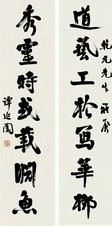 乾元先生雅屬
道藝工於寫華柳
秀靈時或載淵魚
譚延闓